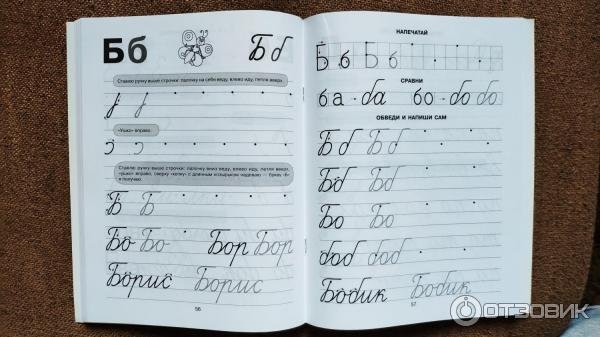 Бб Б б
Ставлю ручку выше строчки: палочку на себя веду, влево иду, петля вверх.
«Ушко» вправо.
Ставлю ручку выше строчки: палочку вниз веду, влево иду, петля вверх, «ушко» вправо, сверху «кепку» с длинным козырьком надеваю — букву «Б» я получаю.
Б Б
Бо Бо Бор Бор
Борис Борис
56
НАПЕЧАТАЙ
Б б Б б
СРАВНИ
ба - ба бо - бо бо
ОБВЕДИ И НАПИШИ САМ
Б б Б б
Бб Бб
Бо Бо
боб боб
Бобик Бобик
57
ОТЗОВИК